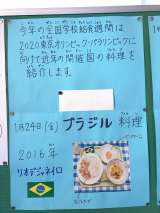 今年の全国学校給食週間は
2020東京オリンピック・パラリンピックに
向けて近年の開催国の料理を
紹介します。
1月24日(金) ブラジル料理
2016年
リオデジャネイロ